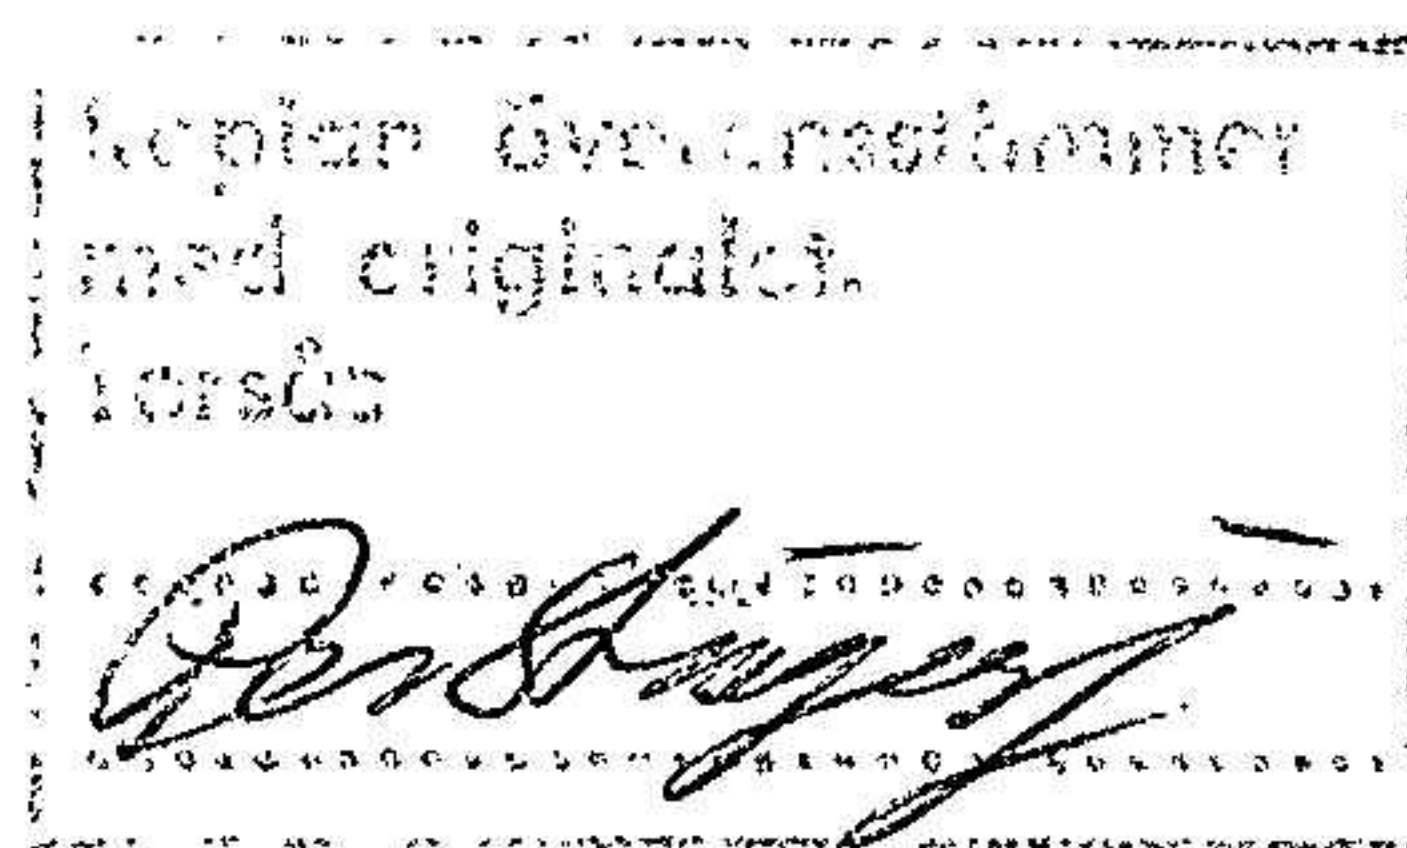 Kopian överensstämmer
med originalet.
Torsås